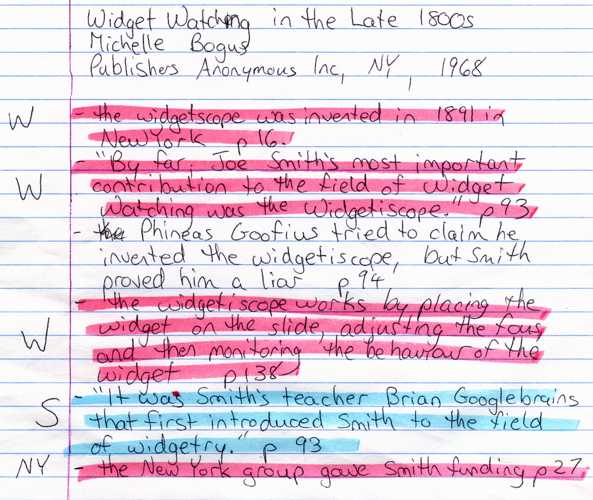 Widget Watching in the Late 1800s
Michelle Bogus
Publishers Anonymous Inc, NY, 1968
W - the widgetscope was invented in 1891 in
New York p 16.
- "By far, Joe Smith's most important
W contribution to the field of Widget
Watching was the Widgetiscope." p 93
- Phineas Goofius tried to claim he
invented the widgetiscope, but Smith
proved him a liar p 94
- the widgetiscope works by placing the
W widget on the slide, adjusting the
and then monitoring the behaviour of the
widget p 138
- "It was Smith's teacher Brian Googlebrains
S that first introduced Smith to the field
of widgetry." p 93
NY - the New York group gave Smith funding p 27